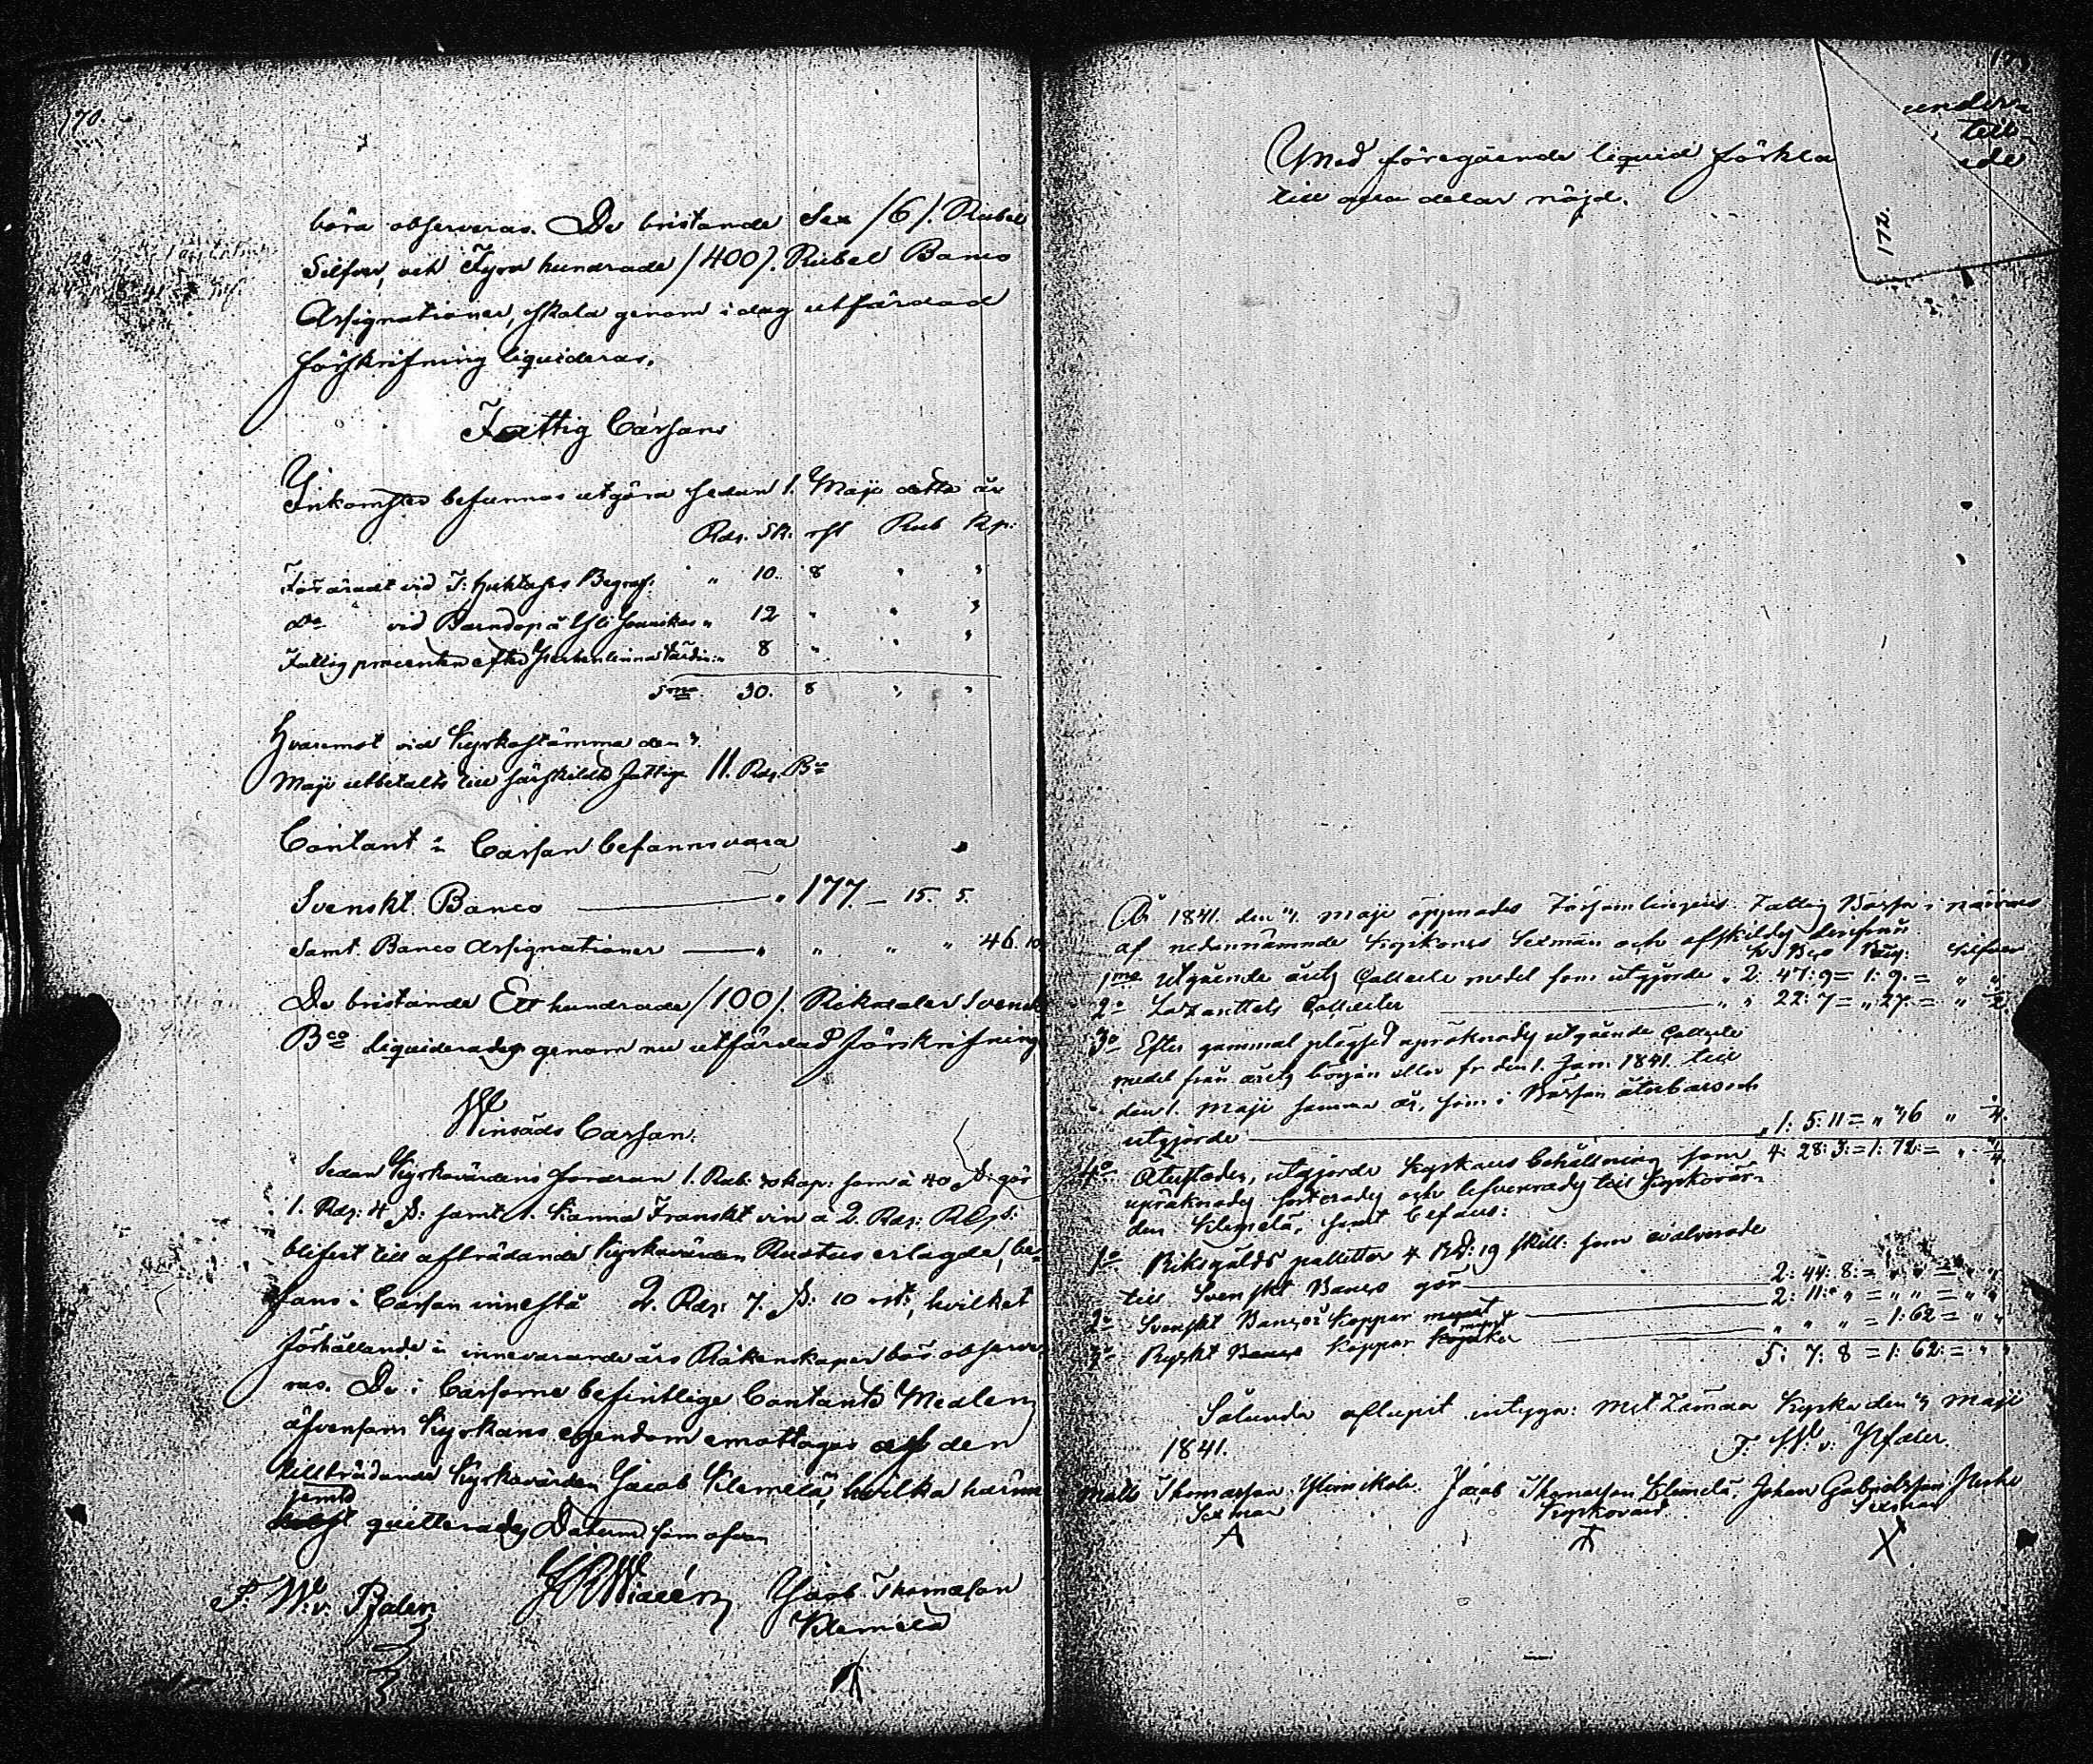 170.
böra observeras. De bristande Sex /6/. Rubel
Silfver, och Fyra hundrade /400/. Rubel Banco
Assignationer, skola genom i dag utfärdad
förskrifning liquideras.
Fattig Cassans
Inkomster befunnos utgöra sedan 1. Maji detta år
Rdr. Sk. rst Rub Kp:
Föräradt vid J: Begraf: " 10. 8 " "
do vid Barndop å " 12 " " "
Fattig procenten efter " 8 " " "
Sma 30. 8 " "
Hvaremot vid Kyrkostämma den
Maji utbetalts till särskilda Fattige 11. Rdr. Bco
Contant i Cassan befanns vara
Svenskt Banco " 177. – 15. 5.
samt Banco Assignationer " " " " 46. 10
De bristande Ett hundrade /100/. Riksdaler Svenskt
Bco liquiderades genom nu utfärdad förskrifning
Winsäds Cassan.
Sedan Kyrkovärdens fordran 1. Rub: kop: som à 40 ß: gör
1. Rdr: 4 ß: samt 1. Kanna Franskt vin à 2. Rdr:
blifvit till afträdande Kyrkovärden erlagde, be-
fans i Cassan innestå 2. Rdr: 7. ß: 10 rst:, hvilket
förhållande i innevarande års Räkenskaper bör observe-
ras. De i Cassorne befintlige Contanta Medlen
äfvensom Kyrkans egendom emottagas af den
tillträdande Kyrkovärden Jacob Klemelä, hvilka härme-
jemte
quitterades Datum som ofvan
F. W. v. Pfaler
Jacob Thomasson
Klemelä
Med föregående liquid förkla
till alla delar nöjd.
under-
till
ede
172.
År 1841. den maji öppnades Församlingens Fattig Kassa i närvaro
af nedannämnde Kyrkones Sexmän och afskildes derifrån
Sv Bco Silfver
1mo Utgående årets Collecte medel som utgjorde " 2: 47: 9 = 1: 9. = " "
2o Lazarettets Collecter " " 22: 7 = " 27. = "
3o Efter gammal plägsed upräknades utgående Collecte
medel från årets början eller fr den 1. Jan: 1841. till
den 1. Maji samma år, som i Kassan återbars och
utgjorde " 1: 5: 11 = " "
4o Återstoden, utgjorde Kyrkans behållning som 4: 28: 3: = 1: 72: = "
upräknades sorterades och lefvererades till Kyrkovär-
den Klemelä, samt befans:
1o Riksgälds palletter 4 Rd: 19 skill: som evalverade
till Svenskt Banco gör 2: 44: 8: = " " = " "
2o Svenskt Banco i Koppar mynt 2: 11: " = " " = " "
3o Ryskt Koppar mynt " " " = 1: 62 = " "
5: 7: 8 = 1: 62: = " "
Sålunda aflupit intyga: Kyrka den maji
1841. F. W. v. Pfaler.
Matts Thomasson Jacob Thomasson Klemelä, Johan Gabrielsson
Sexman Kyrkovärd Sexman